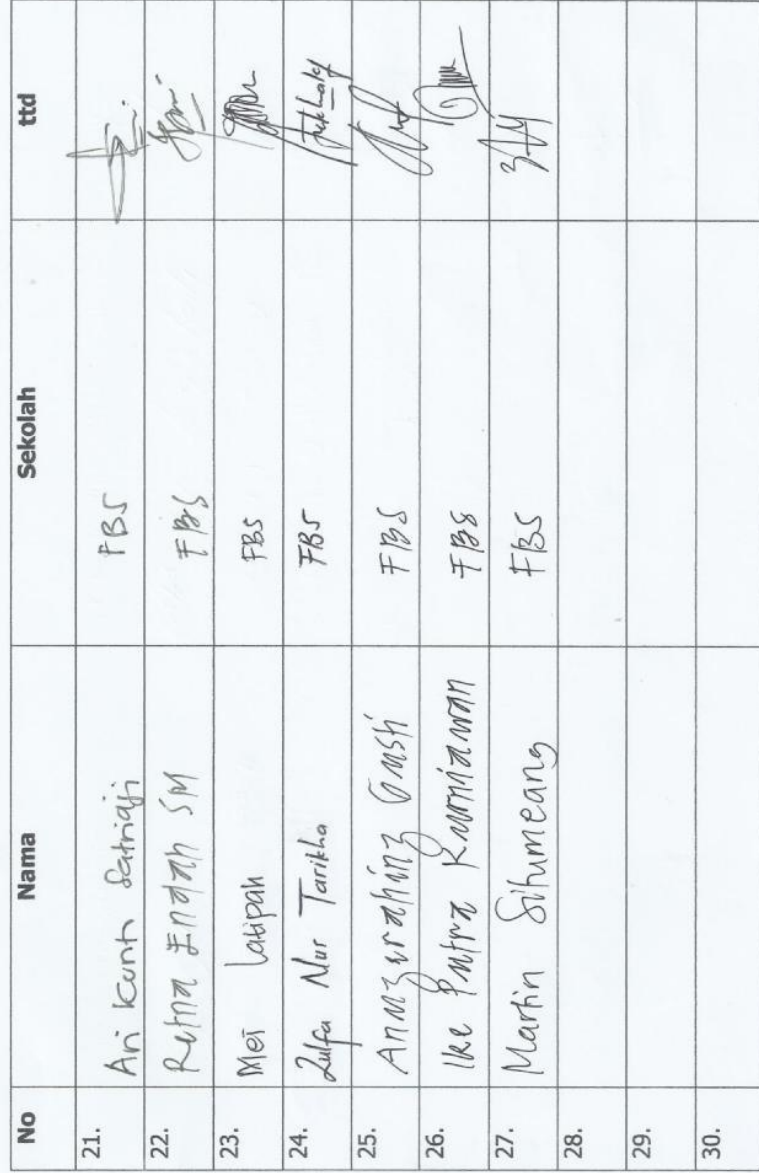 No Nama Sekolah ttd
21. Ari Kunto Satriaji FBS
22. Retna Endah SM FBS
23. Mei Latipah FBS
24. Zulfa Nur Tarikha FBS
25. Anugrahing Gusti FBS
26. Ike Putra Kurniawan FBS
27. Martin Situmeang FBS
28.
29.
30.